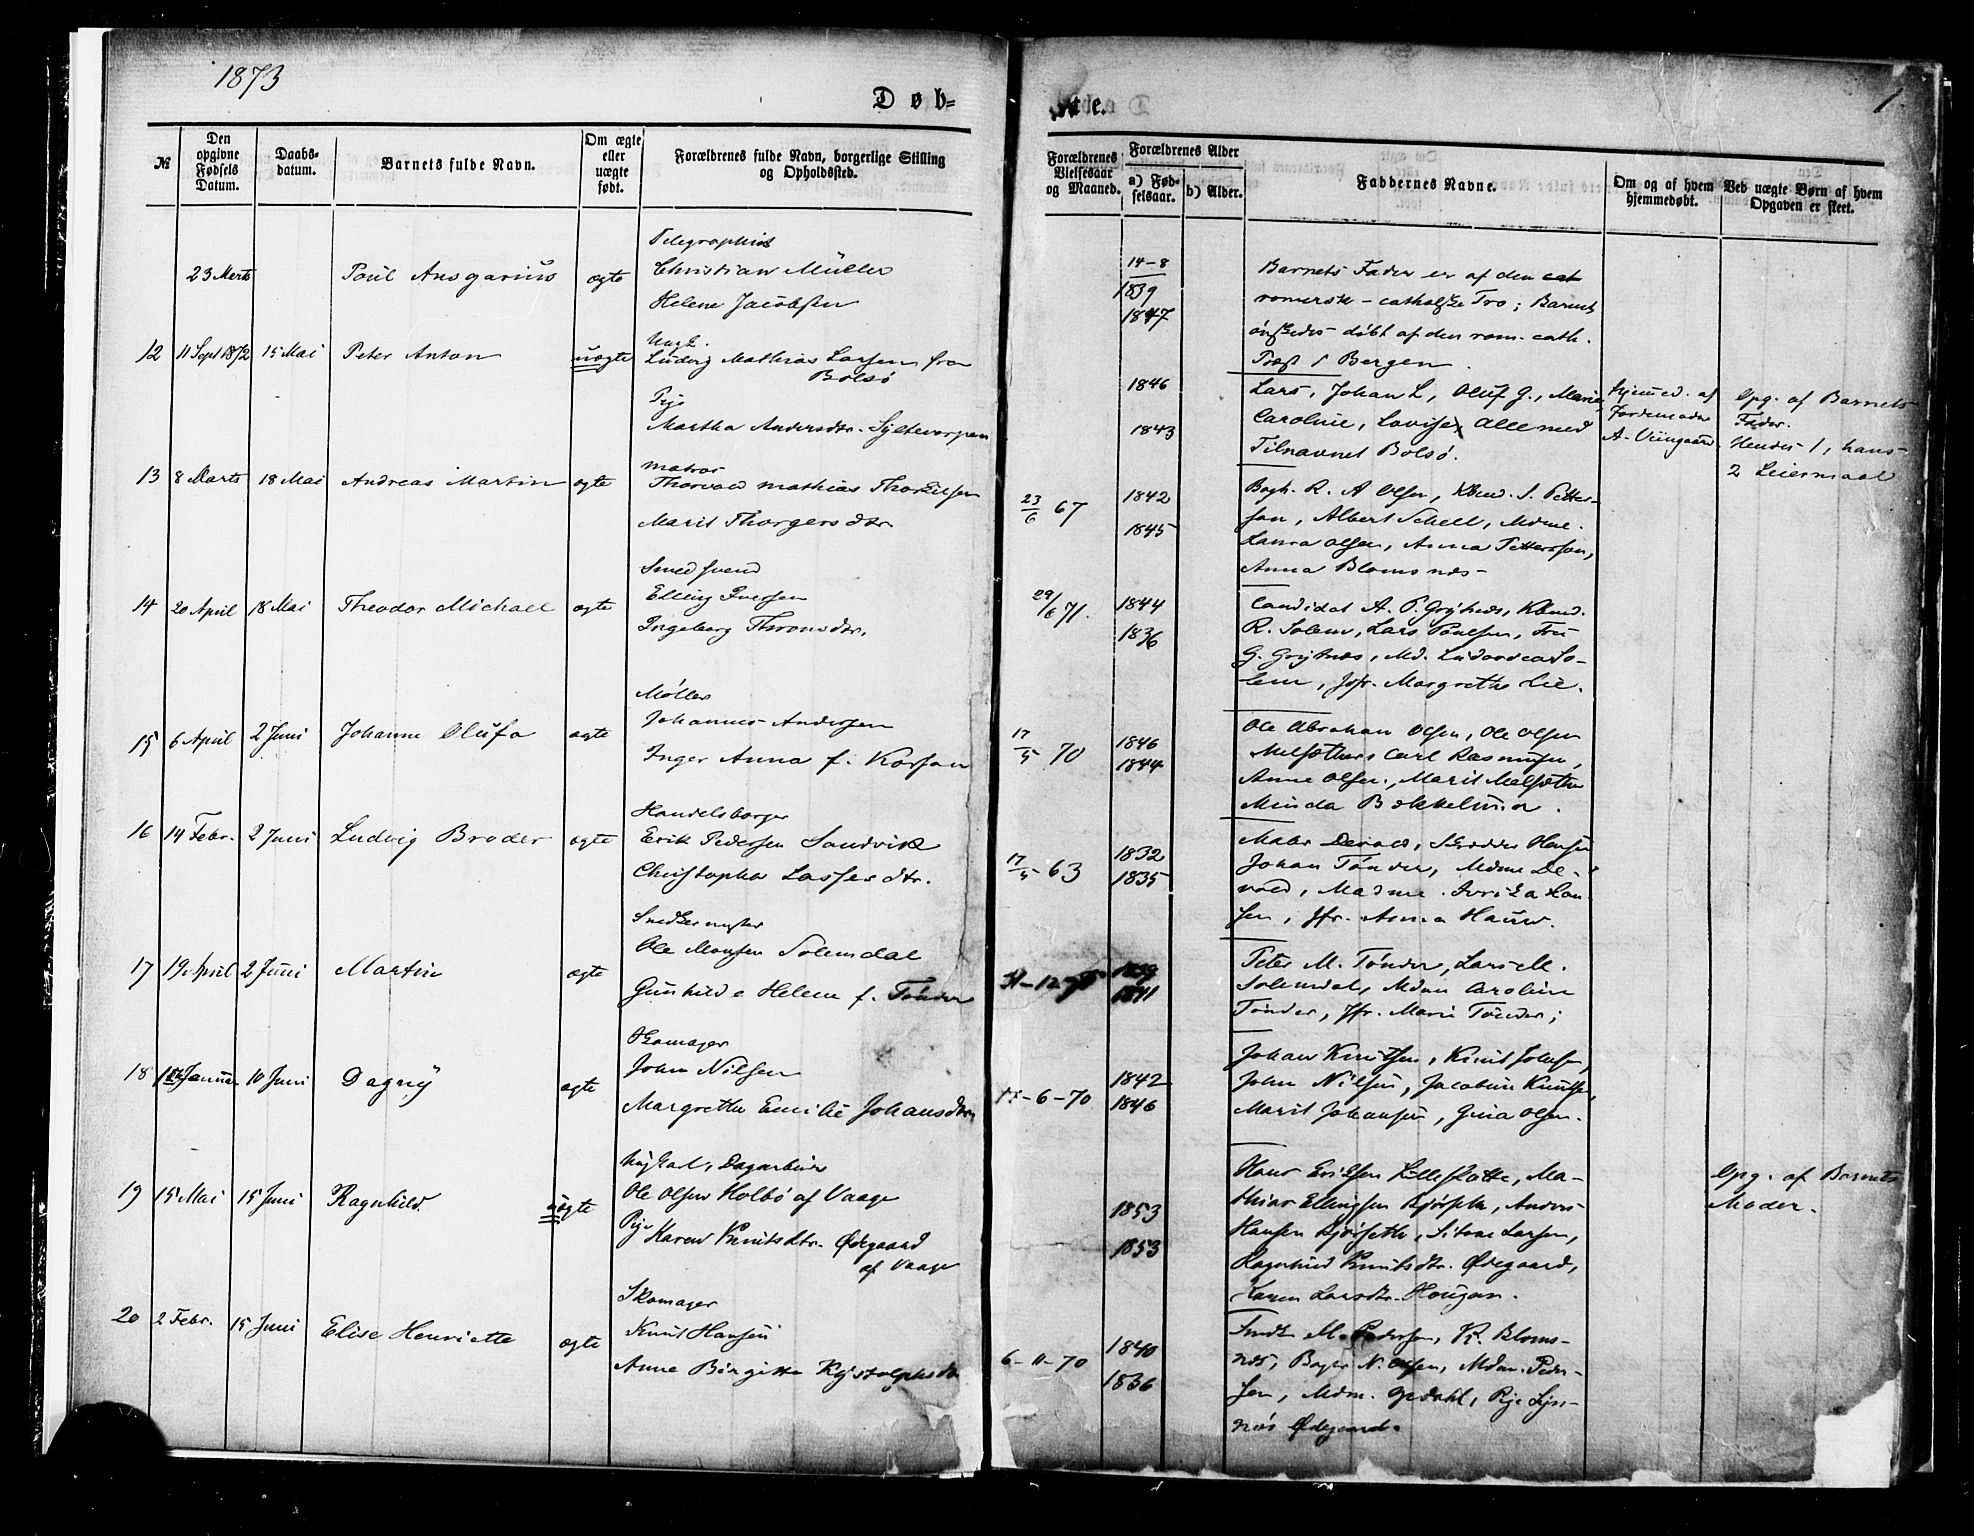 1873
Døb-
te.
1
№
Den opgivne Fødsels Datum.
Daabs-datum.
Barnets fulde Navn.
Om ægte eller uægte født.
Forældrenes fulde Navn, borgerlige Stilling og Opholdssted.
Forældrenes Vielsesaar og Maaned.
Forældrenes Alder
a) Fødselsaar.
b) Alder.
Faddernes Navne.
Om og af hvem hjemmedøbt.
Ved uægte Børn af hvem Opgaven er skeet.
23 Marts
Poul Ansgarius
ægte
Telegraphist
Christian Müller
Helene Jacobsen
14-8
1839
1847
Barnets Fader er af den cat
romersk-catholske Tro; Barnet
ønskedes døbt af den rom. cath.
Præst i Bergen.
12
11 Sept 1872
15 Mai
Peter Anton
uægte
Ungk.
Ludvig Mathias Larsen fra
Bolsø
Pige
Martha Andersdtr.
1846
1843
Lars, Johan L, Oluf G., Marie,
Caroline, Lovise, alle med
Tilnavnet Bolsø.
hjemmed. af
Jordemoder
Opg. af Barnets
Fader.
Hendes 1, hans
2 Leiermaal
13
8 Marts
18 Mai
Andreas Martin
ægte
Matros
Thorvald Mathias Thorkilsen
Marit Thorgersdtr.
23/6 67
1842
1845
Bogh. R. A Olsen, Kbmd. S. Petter-
sen, Albert Schell, Mdme.
Laura Olsen, Anna Pettersen,
Anna Blomsnæs-
14
20 April
18 Mai
Theodor Michael
ægte
Smedsvend
Elling Iversen
Ingeborg Thronsdtr.
29/6 71.
1844
1836
Candidat A. P. Grythnæs, Kbmd.
R. Solem, Lars Poulsen, Fru
G. Grytnæs, Md. Ludovica So-
lem, Jfr. Margrethe Lie.
15
6 April
2 Juni
Johanne Olufa
ægte
Møller
Johannes Andersen
Inger Anna f. Korsan
17/5 70
1846
1844
Ole Abraham Olsen, Ole Olsen
Melsæther, Carl Rasmussen,
Anne Olsen, Marit Melsæther
Minda Bekkelund.
16
14 Febr.
2 Juni
Ludvig Broder
ægte
Handelsborger
Erik Pedersen Sandvik
Christopha Lassesdtr.
17/5-63
1832
1835
Maler Devold, Skrædder Hansen
Johan Tønder, Mdme De-
vold, Madme.
sen, Jfr. Anna
17
19 April
2 Juni
Martin
ægte
Snedkermester
Ole Monsen Solemdal
Gunhilde Helene f. Tønder
31-12-70
1839
1841
Peter M. Tønder, Lars M.
Solemdal, Mdm Caroline
Tønder, Jfr. Marie Tønder;
18
Januar
10 Juni
Dagny
ægte
Skomager
John Nilsen
Margrethe Emilie Johansdtr.
-6-70
1842
1846
Johan Knutsen, Knut Johnsen,
John Nilsen, Jacobine Knutsen,
Marit Johansen, Gina Olsen.
19
15 Mai
15 Juni
Ragnhild
uægte
Ungkarl, Dagarbeider
Ole Olsen Holbø af Vaage
Pige Karen Knutsdtr. Ødegaard
af Vaage
1853
1853
Hans Eriksen Lilleslatte, Ma-
thias Ellingsen Kjørsethr, Anders
Hansen Kjørseth, Larsen,
Ragnhild Knutsdtr. Ødegaard,
Karen Larsdtr. Hougan.
Opg. af Barnets
Moder.
20
2 Febr.
15 Juni
Elise Henriette
ægte
Skomager
Knut Hansen
Anne Birgitte Kristophsdtr
6-11-70
1840
1836
Snedk. M. Pedersen, K. Bloms-
næs, Bager N. Olsen, Mdm. Peder-
sen, Mdm. Opdahl, Pige
Ødegaard.